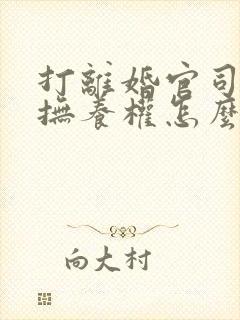 打離婚官司
撫養權怎麼
向大村